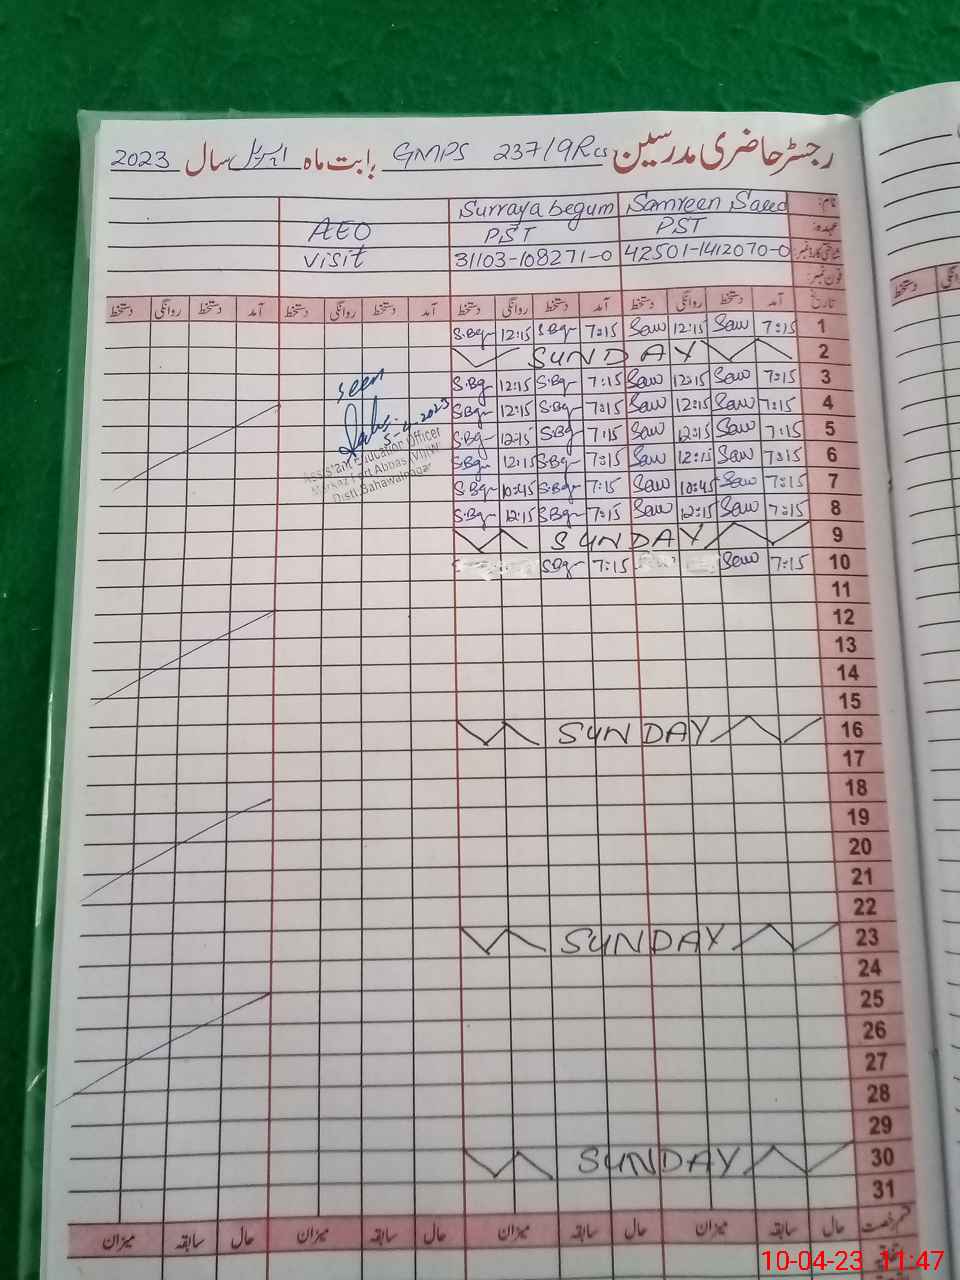 رجسٹر حاضری مدرسین GMPS 237/9R بابت ماہ اپریل سال 2023
نام: Samreen Saeed Surraya begum
عہدہ: PST PST AEO
شناختی کارڈ نمبر: 42501-1412070-0 31103-108271-0 visit
فون نمبر:
تاریخ آمد دستخط روانگی دستخط آمد دستخط روانگی دستخط آمد دستخط روانگی دستخط آمد دستخط روانگی دستخط
1 7:15 Saw 12:15 Saw 7:15 S.Bgr 12:15 S.Bgr
2 SUNDAY
3 7:15 Saw 12:15 Saw 7:15 S.Bgr 12:15 S.Bgr
seen
4 7:15 Saw 12:15 Saw 7:15 S.Bgr 12:15 S.Bgr
5-4-2023
5 7:15 Saw 12:15 Saw 7:15 S.Bgr 12:15 S.Bgr
Assistant Education Officer
6 7:15 Saw 12:15 Saw 7:15 S.Bgr 12:15 S.Bgr
Markaz Fort Abbas
7 7:15 Saw 10:45 Saw 7:15 S.Bgr 10:45 S.Bgr
Distt. Bahawalnagar
8 7:15 Saw 12:15 Saw 7:15 S.Bgr 12:15 S.Bgr
9 SUNDAY
10 7:15 Saw 7:15 S.Bgr
11
12
13
14
15
16 SUNDAY
17
18
19
20
21
22
23 SUNDAY
24
25
26
27
28
29
30 SUNDAY
31
قسم رخصت حال سابقہ میزان حال سابقہ میزان حال سابقہ میزان حال سابقہ میزان
10-04-23 11:47